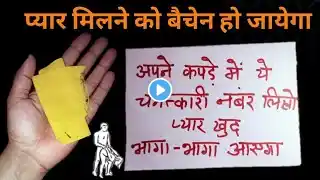 प्यार मिलने को बैचेन हो जायेगा
अपने कपड़े में ये
चमत्कारी नंबर लिखो
प्यार खुद
भागा-भागा आएगा